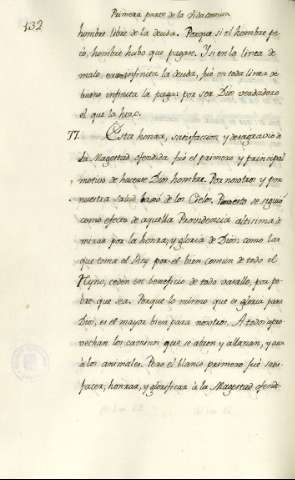 132
Primera parte de la Vida comun
hombre libre de la deuda. Porque si el hombre pe-
có, hombre hubo que pagase. Y si en la linea de
malo era infinita la deuda, fué en toda linea de
bueno infinita la paga: por ser Dios verdadero
el que la hizo.
77. Esta honra, satisfaccion, y desagravio de
la Magestad ofendida fué el primero y principal
motivo de hacerse Dios hombre. Por nosotros y por
nuestra salud bajó de los Cielos. Pero esto se siguió
como efecto de aquella Providencia altisima de
mirar por la honra, y gloria de Dios: como las
que toma el Rey por el bien comun de todo el
Reyno, ceden en beneficio de todo vasallo, por po-
bre que sea. Porque lo mismo que es gloria para
Dios, es el mayor bien para nosotros. A todos apro-
vechan los caminos que se abren y allanan, y aun
à los animales. Pero el blanco primero fué satis-
facer, honrar, y glorificar à la Magestad ofendi-